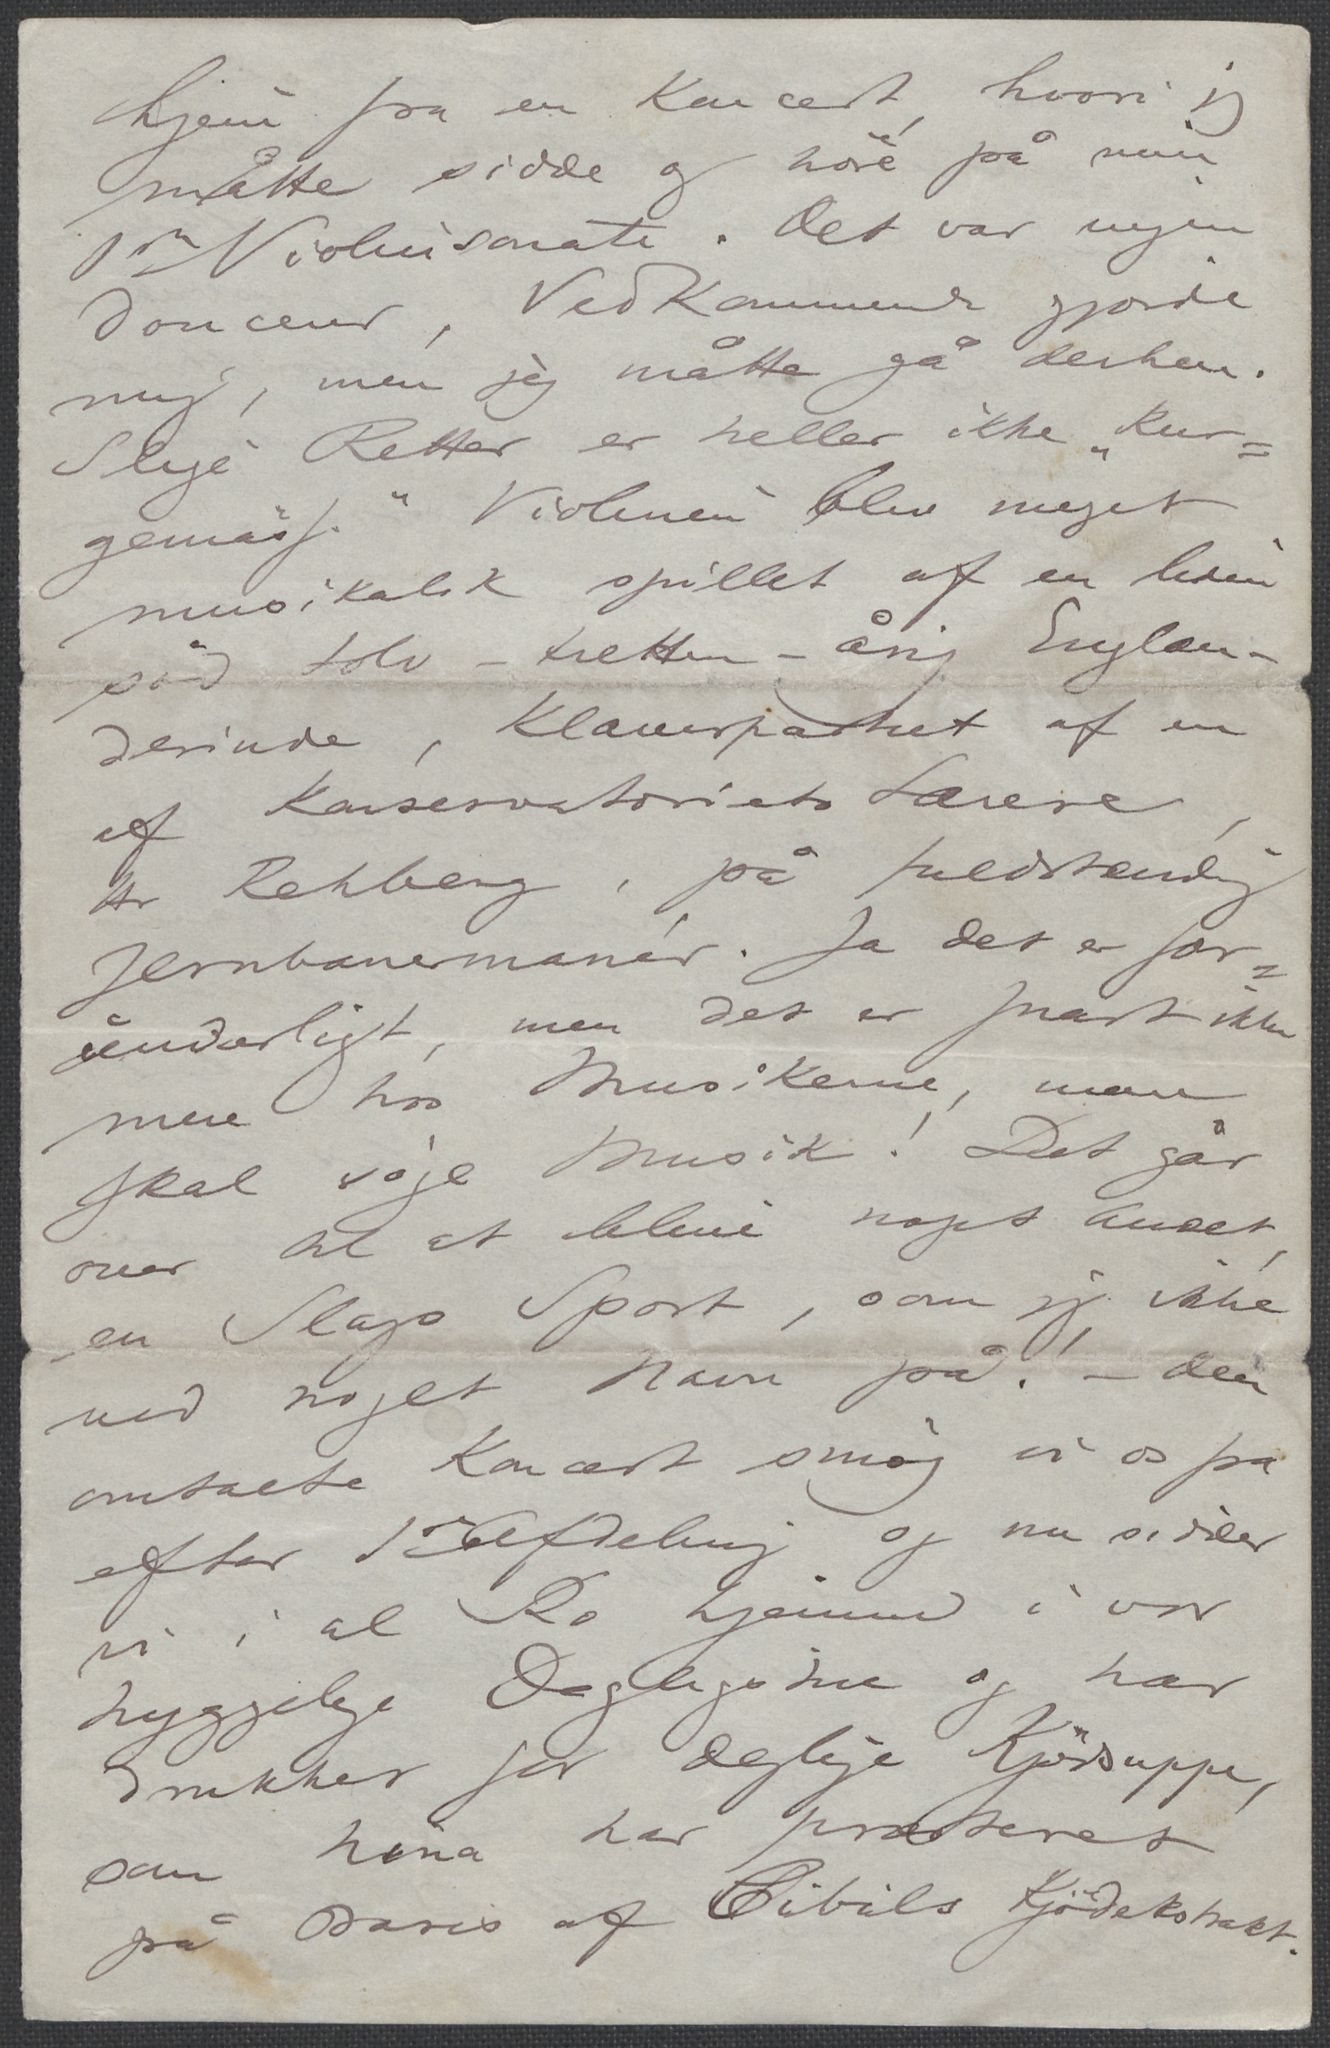 hjem fra en Koncert, hvori jeg
måtte sidde og höre på min
1ste Violinsonate. Det var ingen
Douceur, Vedkommende gjorde
mig, men jeg måtte gå derhen.
Slige Retter er heller ikke „kur=
gemäss." Violinen blev meget
musikalsk spillet af en liden
söd tolv-tretten-årig Englæn-
derinde, Klaverpartiet af en
af Konservatoriets Lærere,
Hr Rehberg, på fuldstændig
Jernbanemanér. Ja det er for=
underligt, men det er snart ikke
mere hos Musikerne, man
skal söge Musik! Det går
over til at blive noget Andet,
en Slags Sport, som jeg ikke
ved noget Navn på! – Den
omtalte Koncert smög vi os fra
efter 1ste Afdeling og nu sidder
vi i al Ro hjemme i vor
hyggelige Dagligstue og har
drukket for deglige Kjödsuppe,
som Nina har præsteret
på Basis af Cibils Kjödekstrakt.